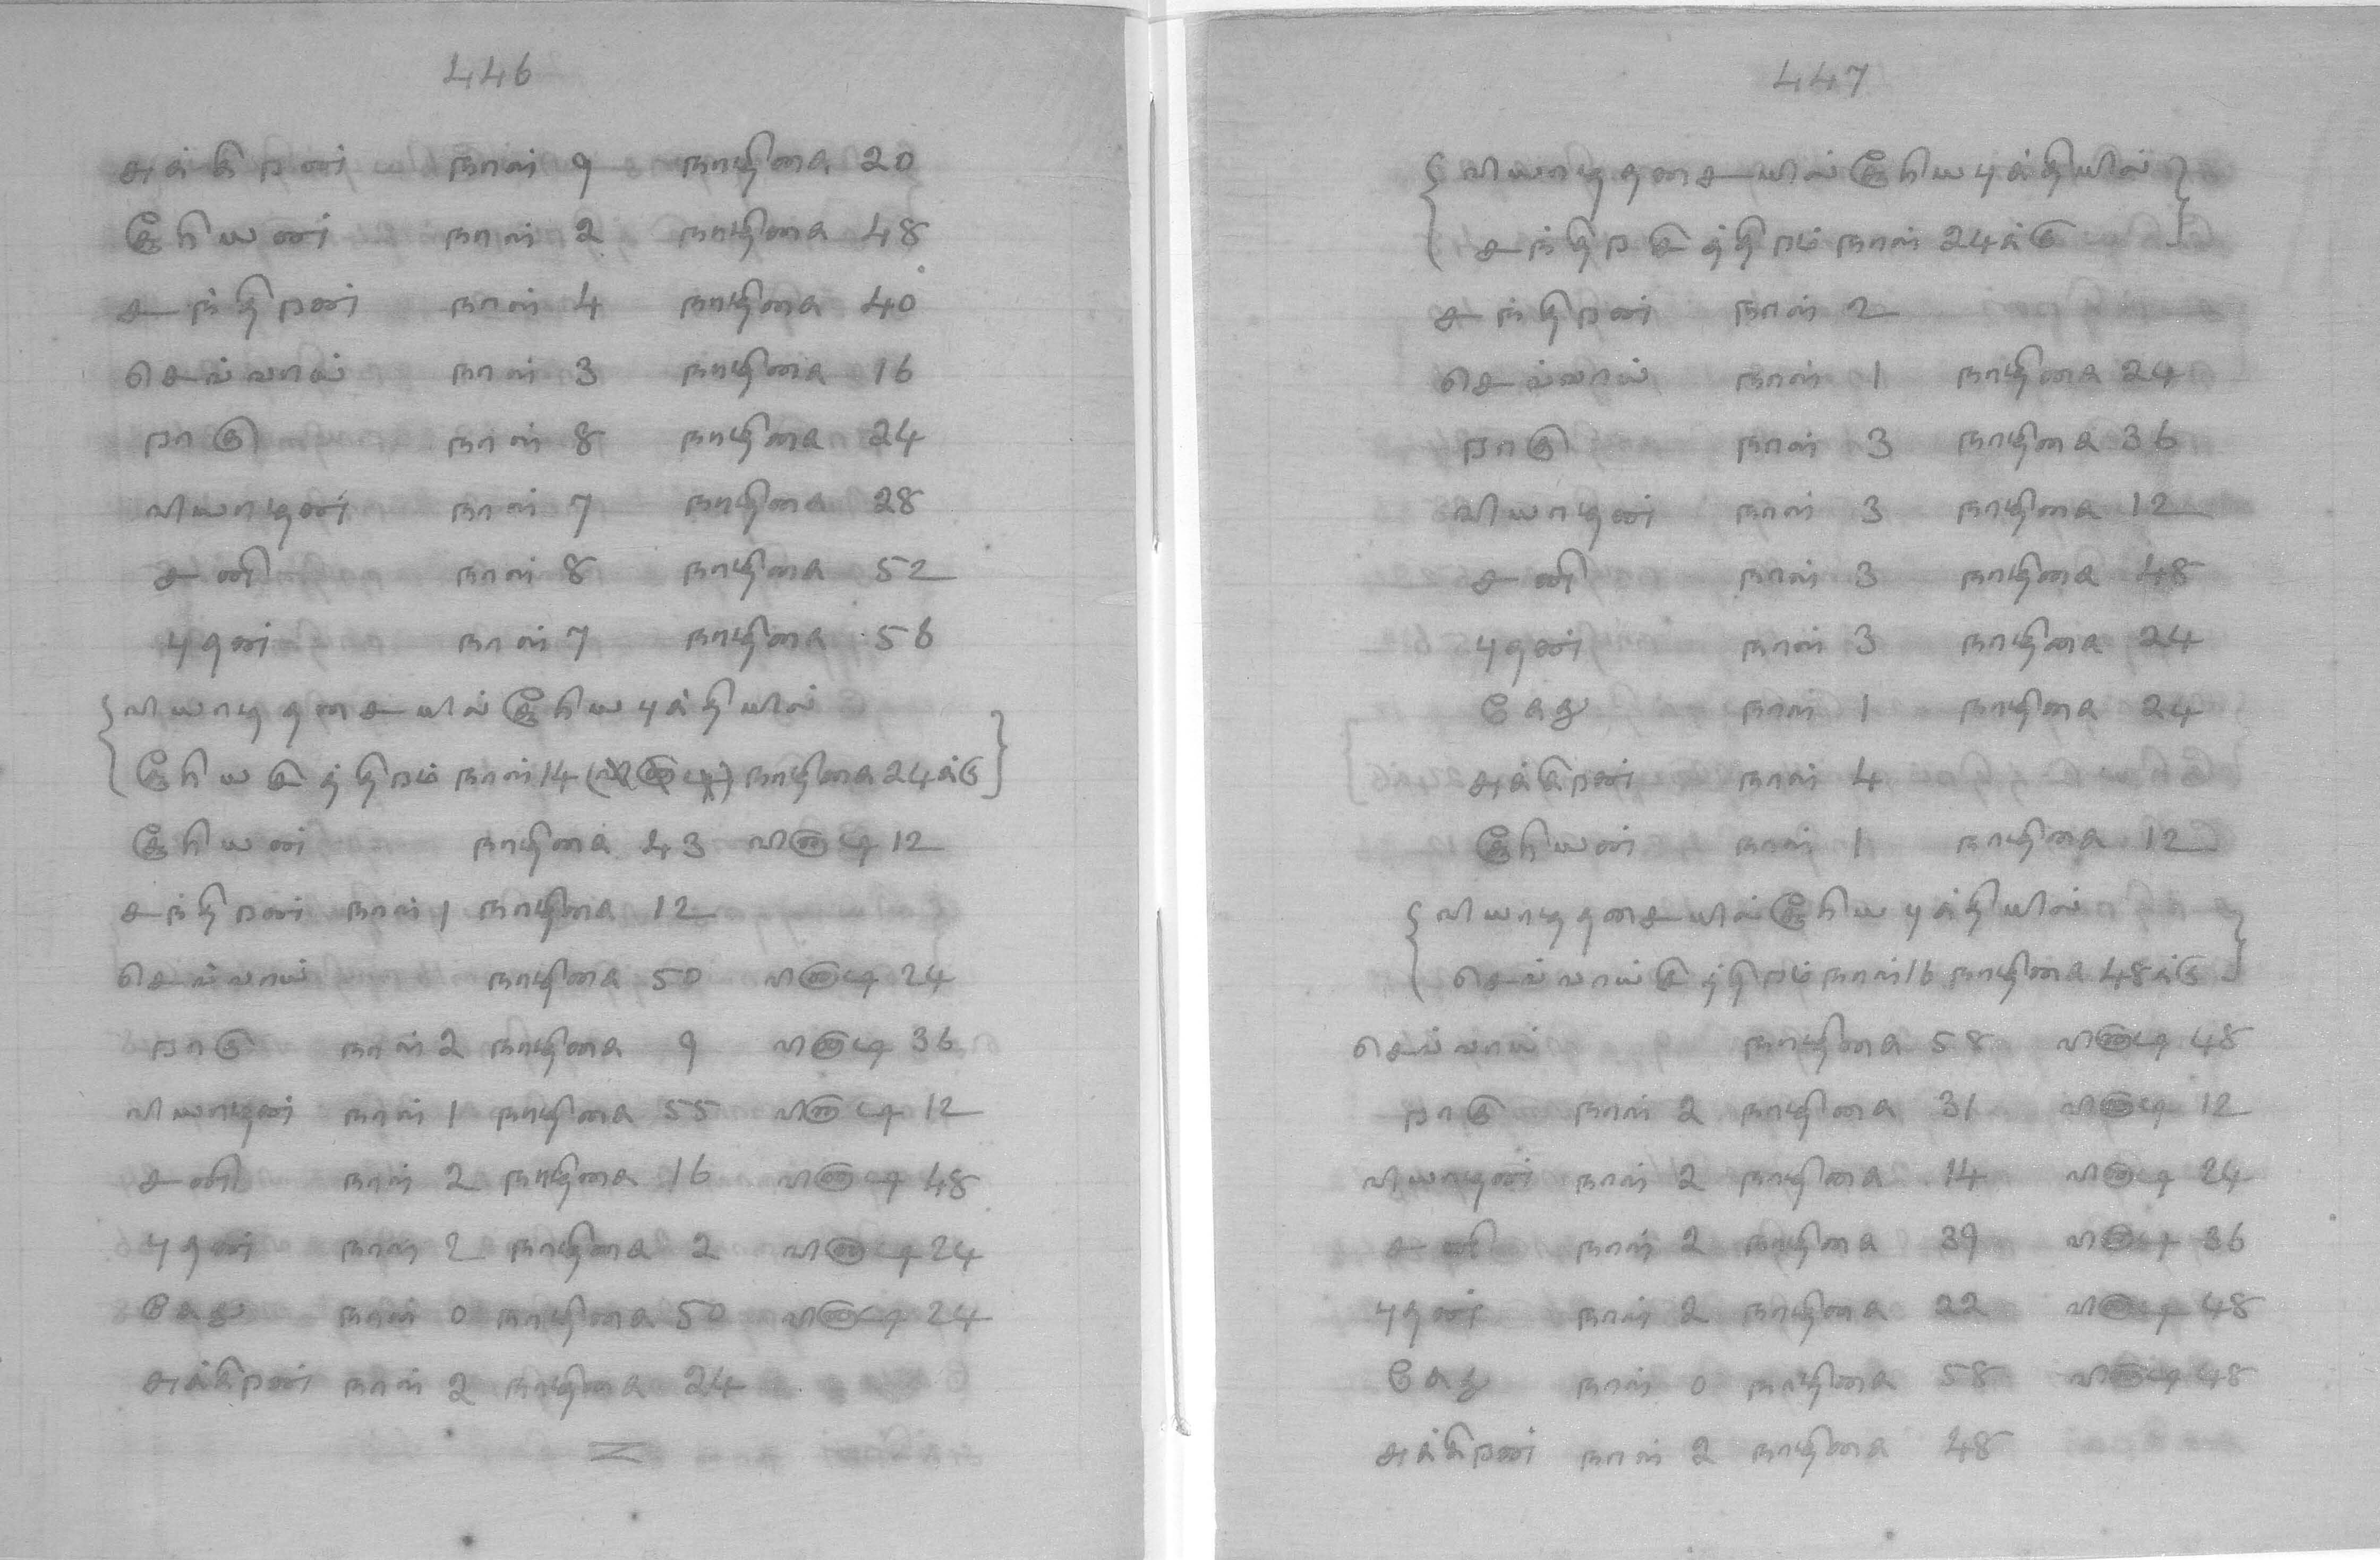 446
சுக்கிறன் நாள் 9 நாழிகை 20
சூரியன் நாள் 2 நாழிகை 48
சந்திறன் நாள் 4 நாழிகை 40
செவ்வாய் நாள் 3 நாழிகை 16
றாகு நாள் 8 நாழிகை 24
வியாழன் நாள் 7 நாழிகை 28
சனி நாள் 8 நாழிகை 52
புதன் நாள் 7 நாழிகை 56
{வியாழதசையில் சூரியபுக்தியில்
சூரியசூத்திறம் நாள் 14 நாழிகை 24க்கு}
சூரியன் நாழிகை 43 வினாடி 12
சந்திறன் நாள் 1 நாழிகை 12
செவ்வாய் நாழிகை 50 வினாடி 24
றாகு நாள் 2 நாழிகை 9 வினாடி 36
வியாழன் நாள் 1 நாழிகை 55 வினாடி 12
சனி நாள் 2 நாழிகை 16 வினாடி 48
புதன் நாள் 2 நாழிகை 2 வினாடி 24
கேது நாள் 0 நாழிகை 50 வினாடி 24
சுக்கிறன் நாள் 2 நாழிகை 24
447
{வியாழதசையில் சூரியபுக்தியில்
சந்திறசூத்திறம் நாள் 24க்கு}
சந்திறன் நாள் 2
செவ்வாய் நாள் 1 நாழிகை 24
றாகு நாள் 3 நாழிகை 36
வியாழன் நாள் 3 நாழிகை 12
சனி நாள் 3 நாழிகை 48
புதன் நாள் 3 நாழிகை 24
கேது நாள் 1 நாழிகை 24
சுக்கிறன் நாள் 4
சூரியன் நாள் 1 நாழிகை 12
{வியாழதசையில் சூரியபுக்தியில்
செவ்வாய்சூத்திறம் நாள் 16 நாழிகை 48க்கு}
செவ்வாய் நாழிகை 58 வினாடி 48
றாகு நாள் 2 நாழிகை 31 வினாடி 12
வியாழன் நாள் 2 நாழிகை 14 வினாடி 24
சனி நாள் 2 நாழிகை 39 வினாடி 36
புதன் நாள் 2 நாழிகை 22 வினாடி 48
கேது நாள் 0 நாழிகை 58 வினாடி 48
சுக்கிறன் நாள் 2 நாழிகை 48